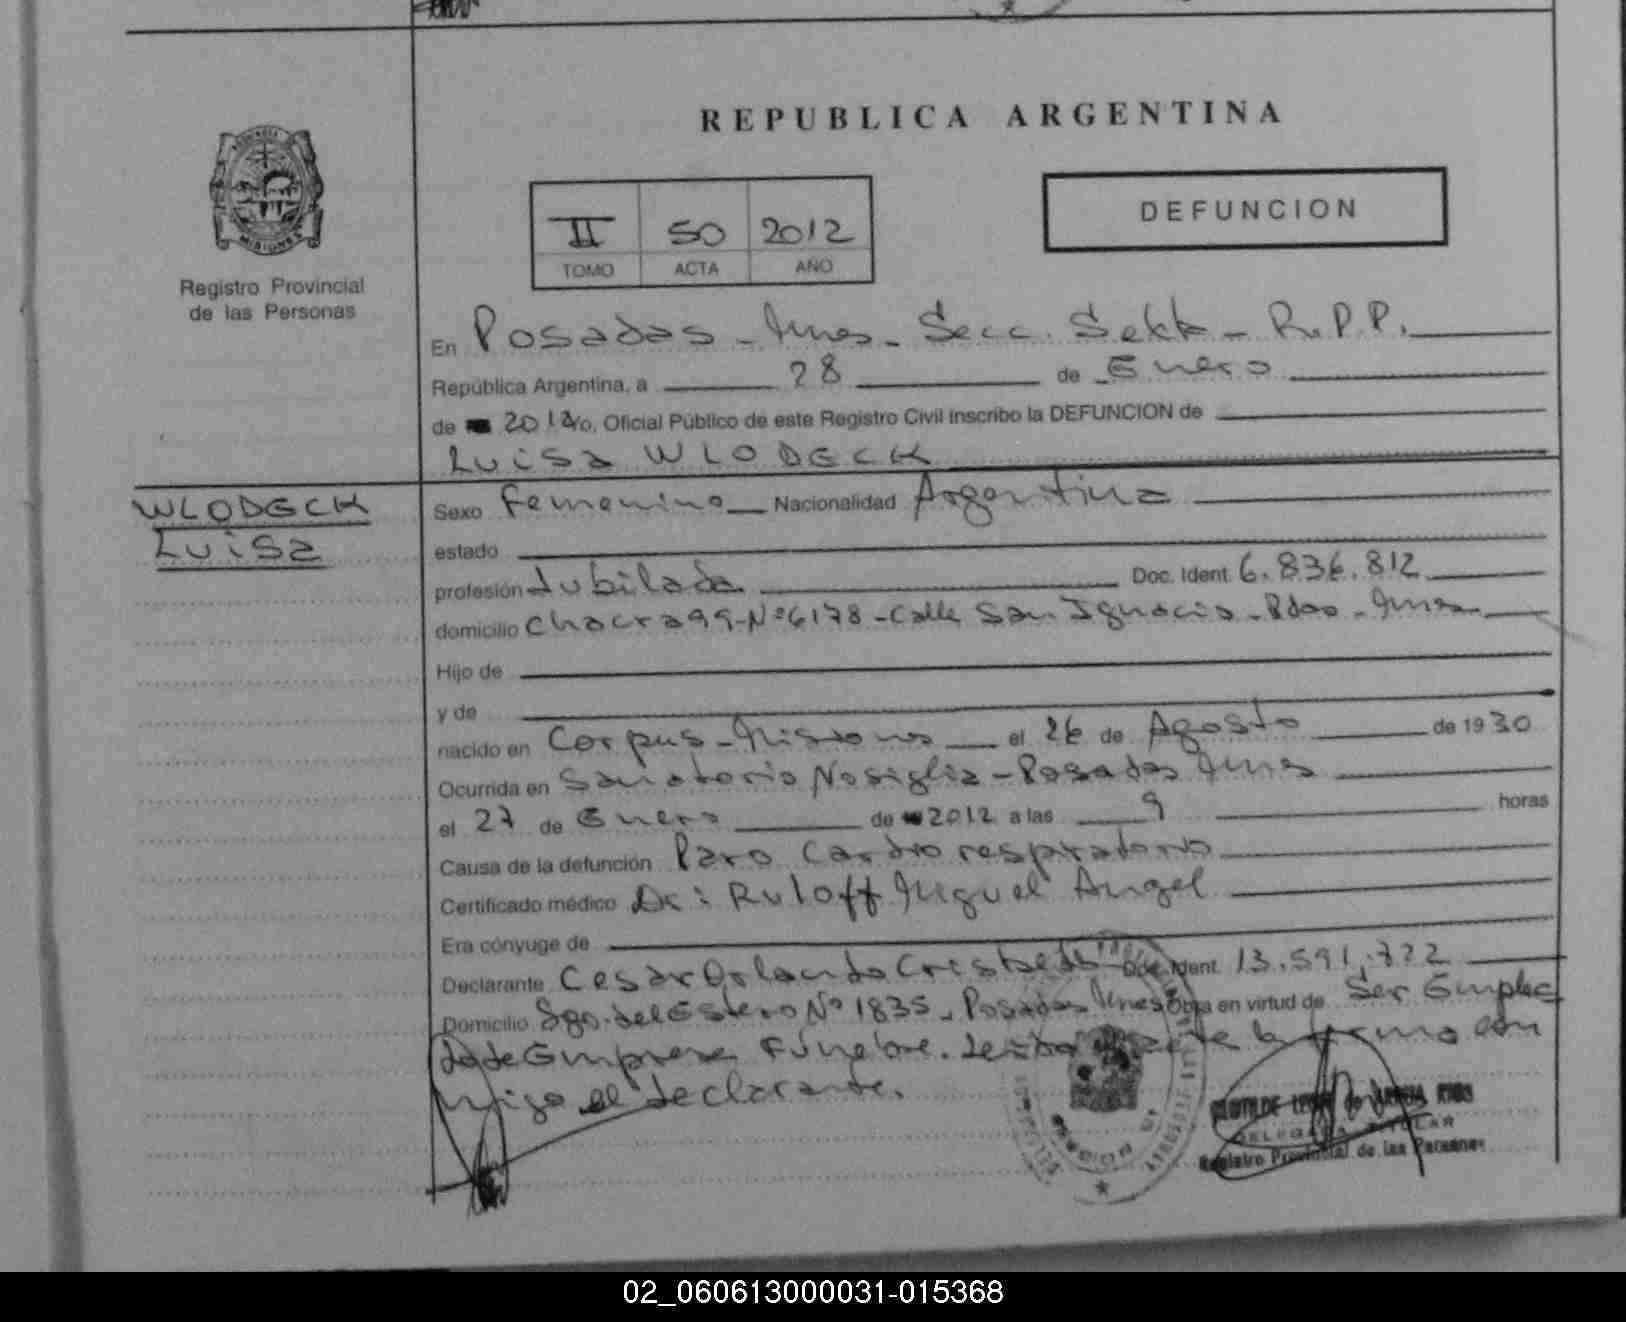 REPUBLICA ARGENTINA
DEFUNCION
II 50 2012
TOMO ACTA AÑO
MISIONES
Registro Provincial
de las Personas
En Posadas - Mnes - Secc. Sexta - R.P.P.
República Argentina, a 28 de Enero
de 2012 Yo, Oficial Público de este Registro Civil inscribo la DEFUNCION de
Luisa WLODECK
WLODECK
Luisa
Sexo Femenino Nacionalidad Argentina
estado
profesión Jubilada Doc. Ident. 6.836.812
domicilio Chacra 99 - Nº 6178 - Calle San Ignacio - Pdas - Mnes
Hijo de
y de
nacido en Corpus - Misiones el 26 de Agosto de 1930
Ocurrida en Sanatorio Nosiglia - Posadas Mnes
el 27 de Enero de 2012 a las 9 horas
Causa de la defunción Paro Cardio respiratorio
Certificado médico Dr: Ruloff Miguel Angel
Era cónyuge de
Declarante Cesar Orlando Cristaldo Doc. Ident. 13.591.722
Domicilio Sgo. del Estero Nº 1835 - Posadas Mnes Obra en virtud de Ser Emplea
do de Empresa Fúnebre. Leída el acta la firma con
migo el declarante.
DELEGADA TITULAR
Registro Provincial de las Personas
02_060613000031-015368